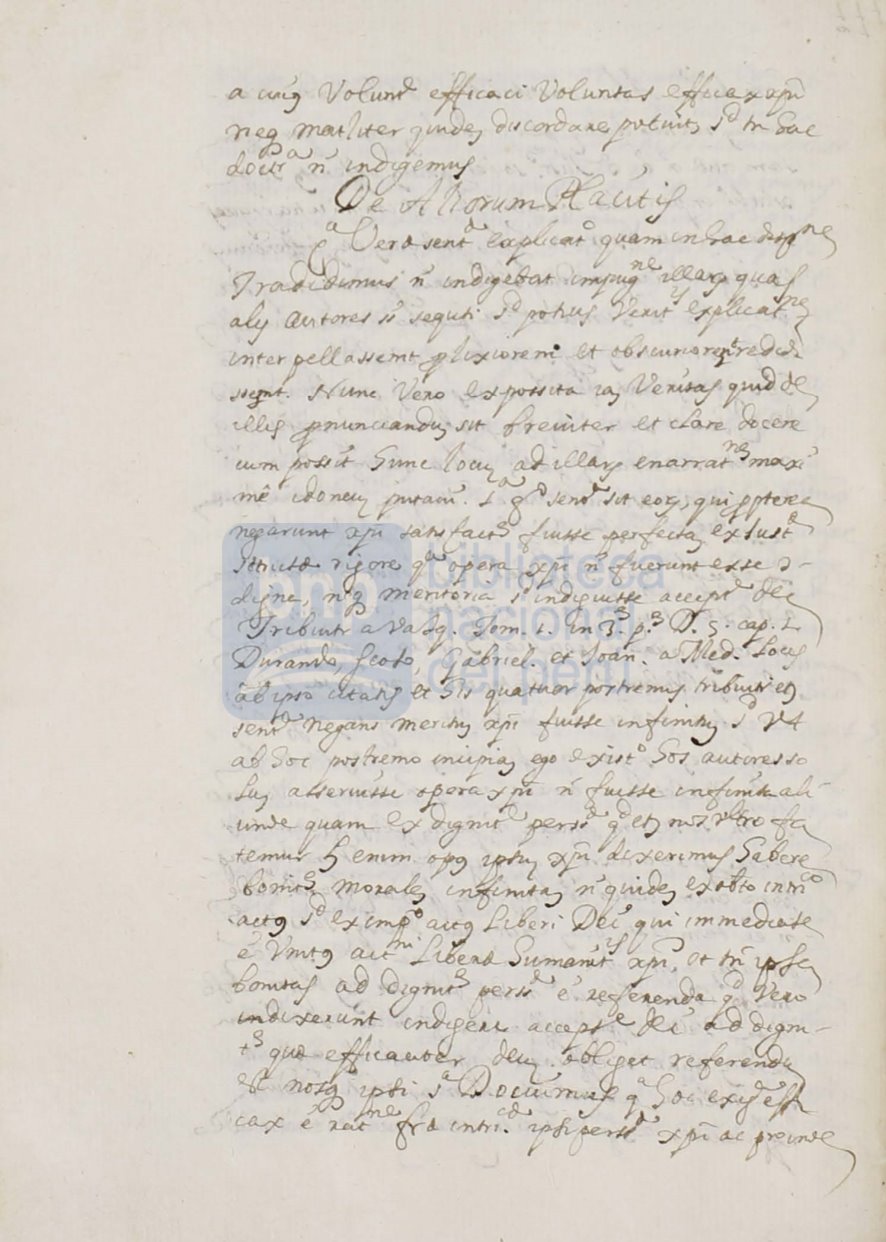 a cuiꝯ Volunt.e efficaci Voluntas efficax xpi
neq matliter quidē discordare potuit, sd tn hac
doctra n indigemus
De Aliorum Placitis
Veræ sent.æ explicat.o quam in hac disp.ne
Tradidimus n indigebat impug.ne illarū quas
alij Autores st sequti sd potius Verit.is explicat.nē
inter pellassent prolixiorem et obscuriorem redidi
ssent. Nunc Vero expossita iā Veritas quid de
illis pronunciandū sit breviter et clare docere
cum possit hunc locū ad illarū enarrat.nē maxi
mê idoneū putavi. 1.a qd sent.a sit eorū, qui propterea
negarunt xpi satisfact.ē fuisse perfectā ex Iust.æ
strictæ rigore qa opera xpi n fuerunt ex se
digne, neq meritoria sd indiguisse accept.e Dei
Tribuitr a Vasq. Tom. 1. in 3. p. D. 5. cap. 1
Durando, Scoto, Gabriel. et Ioan. a Med. Locis
ab ipso citatis et his quatuor postremis tribuitr et
sent.a negans meritū xpi fuisse infinitū sd Vt
ab hoc postremo incipiā ego exist.o hos autores so
lū asseruisse opera xpi n fuisse infinita ali
unde quam ex dignit.e pers.æ qd et nos ultro fa
temur enim opꝯ ipsiꝯ xpi dixerimus habere
bonit.ē moralē infinitā n quidē ex obto intri.co
actꝯ sd ex imp.o actꝯ Liberi Dei qui immediate
ê Liberæ humanit.is xpi, et tn ipsa
bonitas ad dignit.ē pers.æ ê referenda qd Vero
indixerunt indigere accept.e Dei ad digni-
t.ē quæ efficaciter deū obliget referendū
nosq ipsi sa Docuimus qa hoc effi
cax ê rat.ne intri.cæ ipsi pers.æ xpi ac proinde